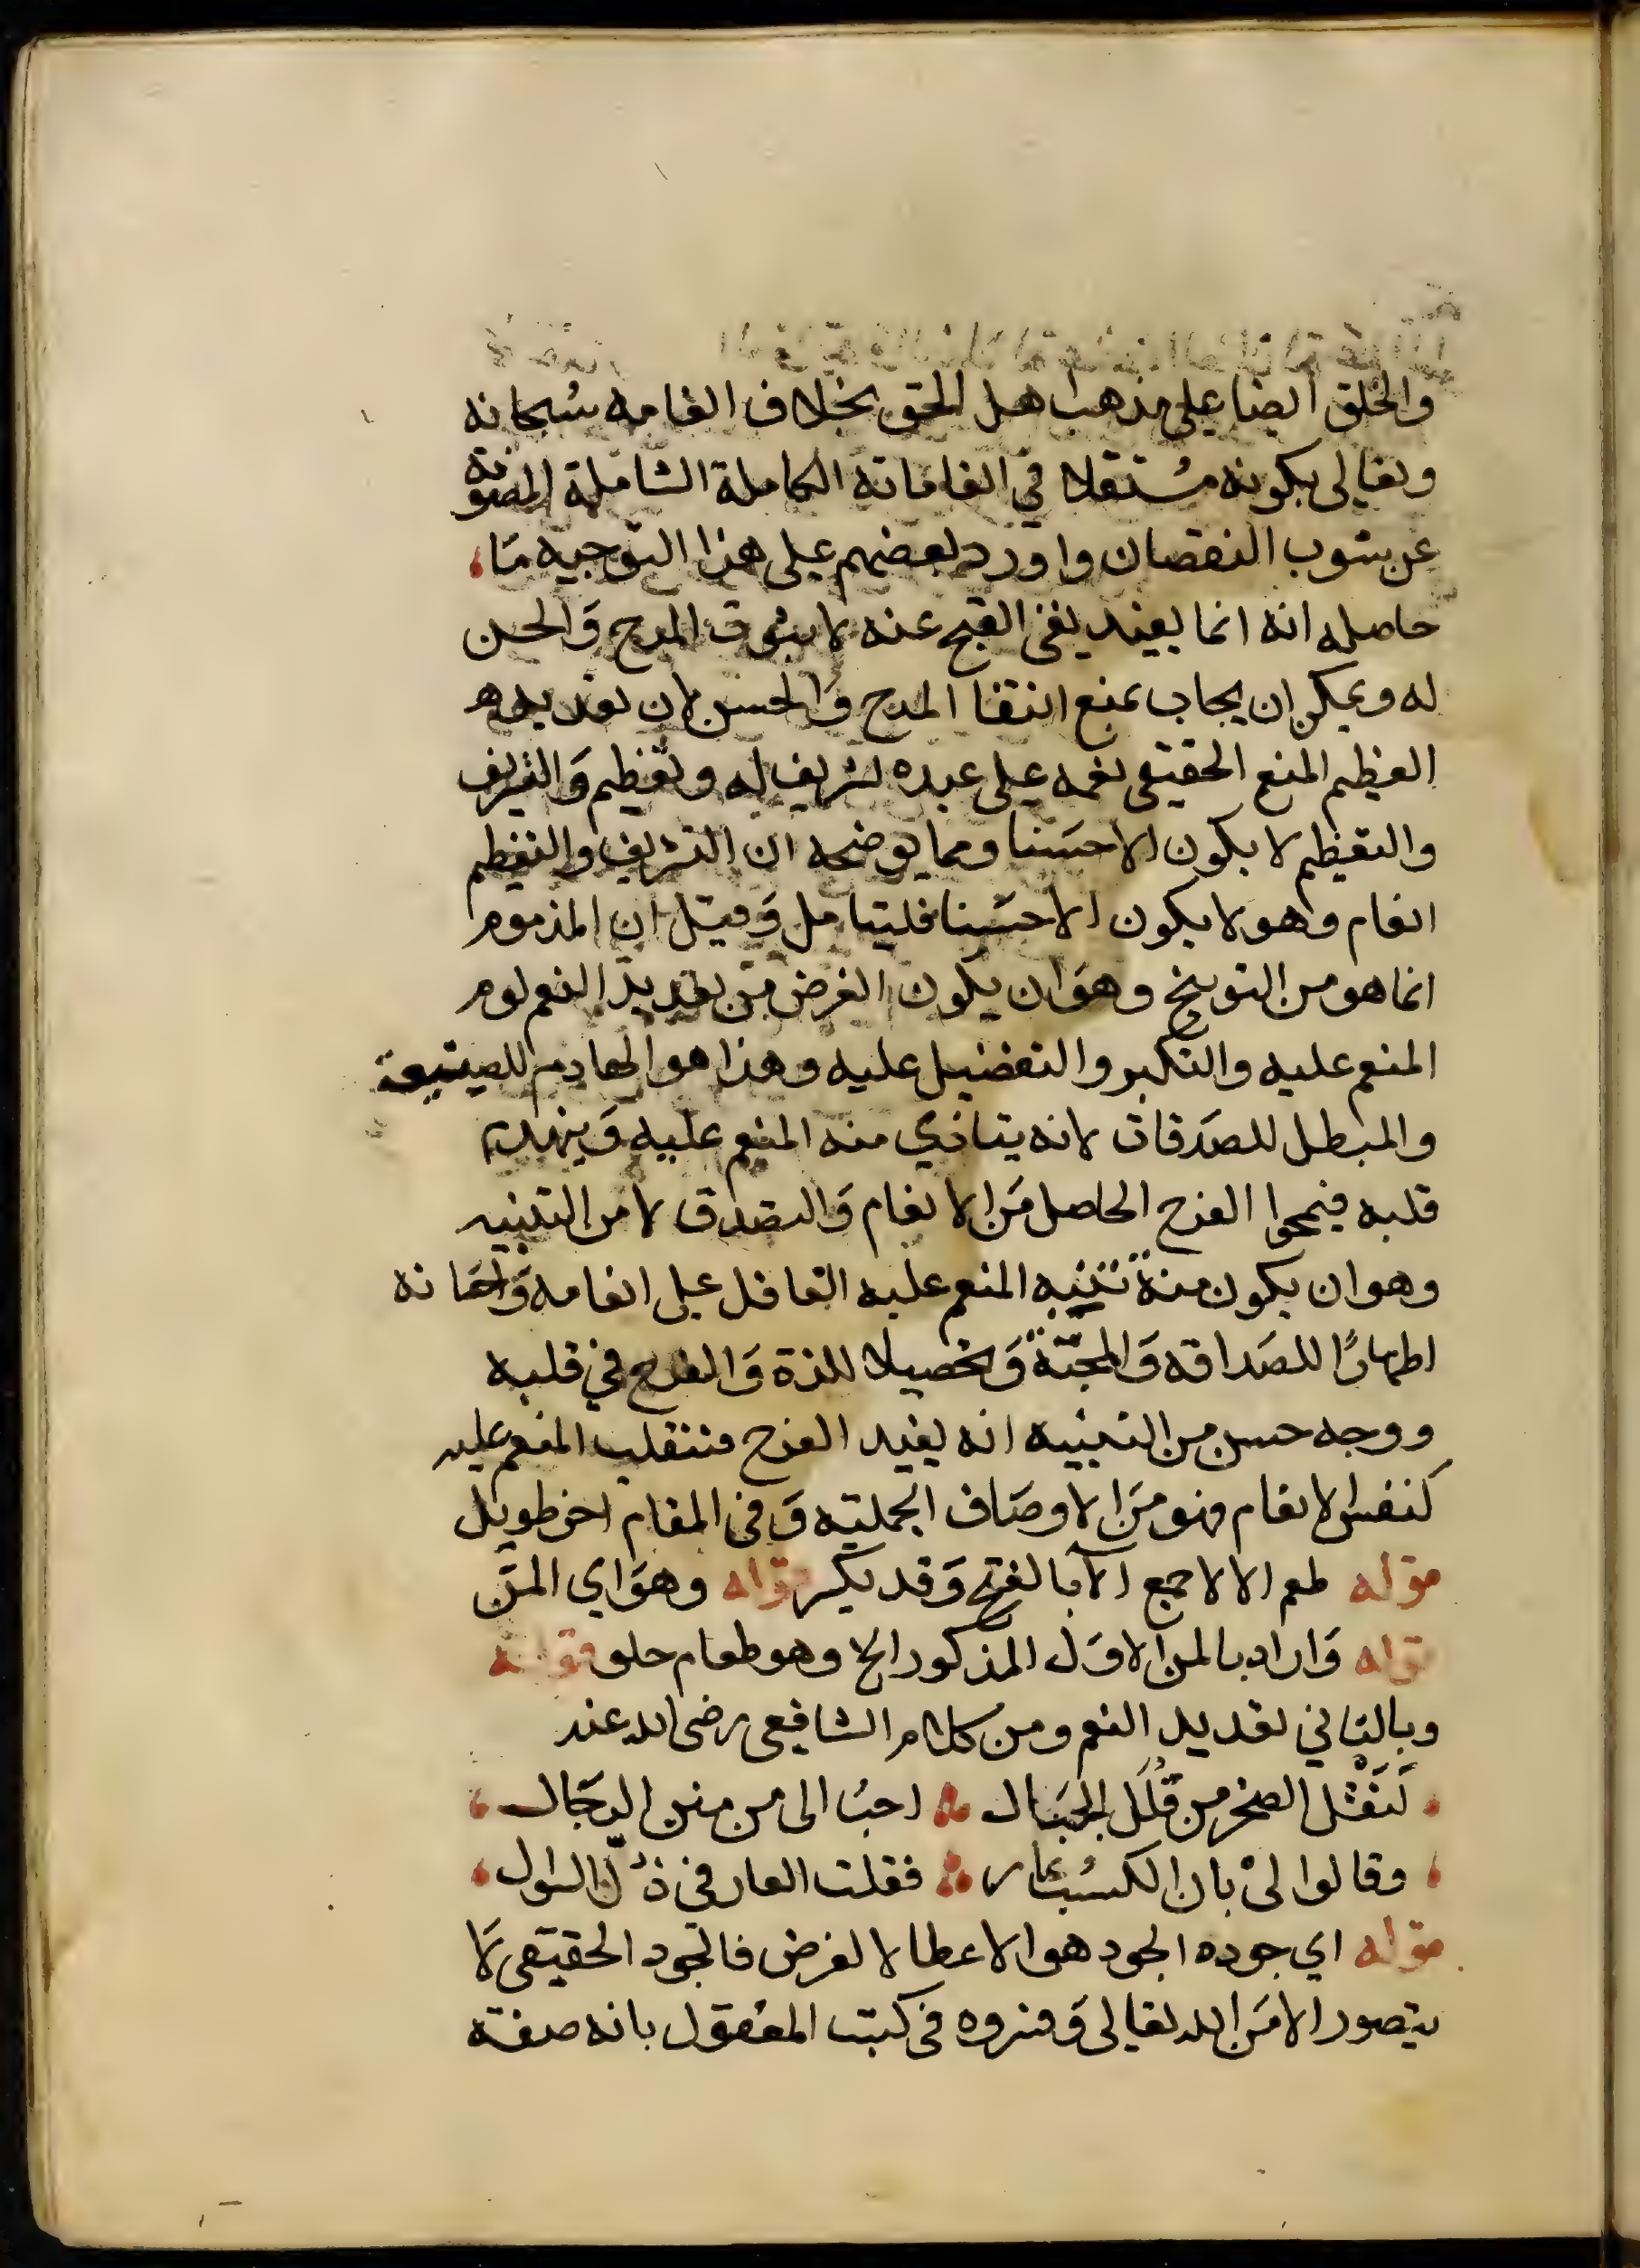 والخلق ايضا على مذهب اهل الحق بخلاف انعامه سبحانه
وتعالى بكونه مستقلا في انعاماته الكاملة الشاملة المصونة
عن شوب النقصان واورد بعضهم على هذا التوجيه ما،
حاصله انه انما يفيد نفى القبح عنه لا ثبوت المدح وَالحسن
له ويمكن ان يجاب بمنع انتفا المدح وَالحسن لان تعديد
العظيم المنعم الحقيقى نعمه على عبده تشريف له وتعظيم وَالتشريف
والتعظيم لا يكون الا حسَنا ومما يوضحه ان التشريف والتعظيم
انعام وهو لا يكون الا حسَنا فليتامل وَقيل ان المذموم
انما هو من التوبيخ وهوَ ان يكون الغرض من تعديد النعم لوم
المنعم عليه والتكبر والتفضيل عليه وهذا هو الهادم للصنيعة
والمبطل للصدَقات لانه يتاذي منه المنعم عليه وَينهدم
قلبه فيمحوا الفرح الحاصل مَن الانعام وَالتصدق لا من التنبيه
وهو ان يكون منة تنبيه المنعم عليه الغافل على انعامه وَاحسَانه
اظهارًا للصَداقه وَالمحبّة وَتحصيلا للذة وَالفرح في قلبه
ووجه حسن من التنبيه انه يفيد الفرح فتنقلب المنعم عليه
كنفس الانعام فهو مَن الاوصَاف الجمليّه وَفى المقام اخر طويل
قوله طعم الالا جمع الآ بالفتح وَقد يكسر قوله وهوَ اي المنّ
قوله وَاراد بالمن الاوَل المذكور الخ وهو طعام حلو قوله
وبالثاني تعديد النعم ومن كلام الشافعى رضى الله عنه
لَنَقْل الصخر من قُلَل الجبَال ؞ احبُ الى من منن الرجَال
وقالوا لىْ بان الكسْب عار ؞ فقلت العار فى ذُلّ السوال
قوله اي جوده الجود هو الاعطا لا لغرض فالجود الحقيقى لَا
يتصور الا مَن الله تعالى وَفسروه فى كتب المعْقول بانه صفة